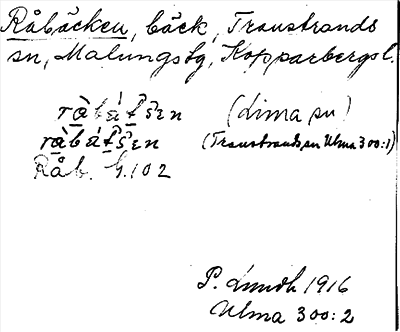 Råbäcken, bäck, Transtrands
sn, Malungs tg, Kopparbergs l.
(Lima sn)
(Transtrands sn Ulma 300:1)
Råb. G.102
P. Lundh 1916
Ulma 300:2